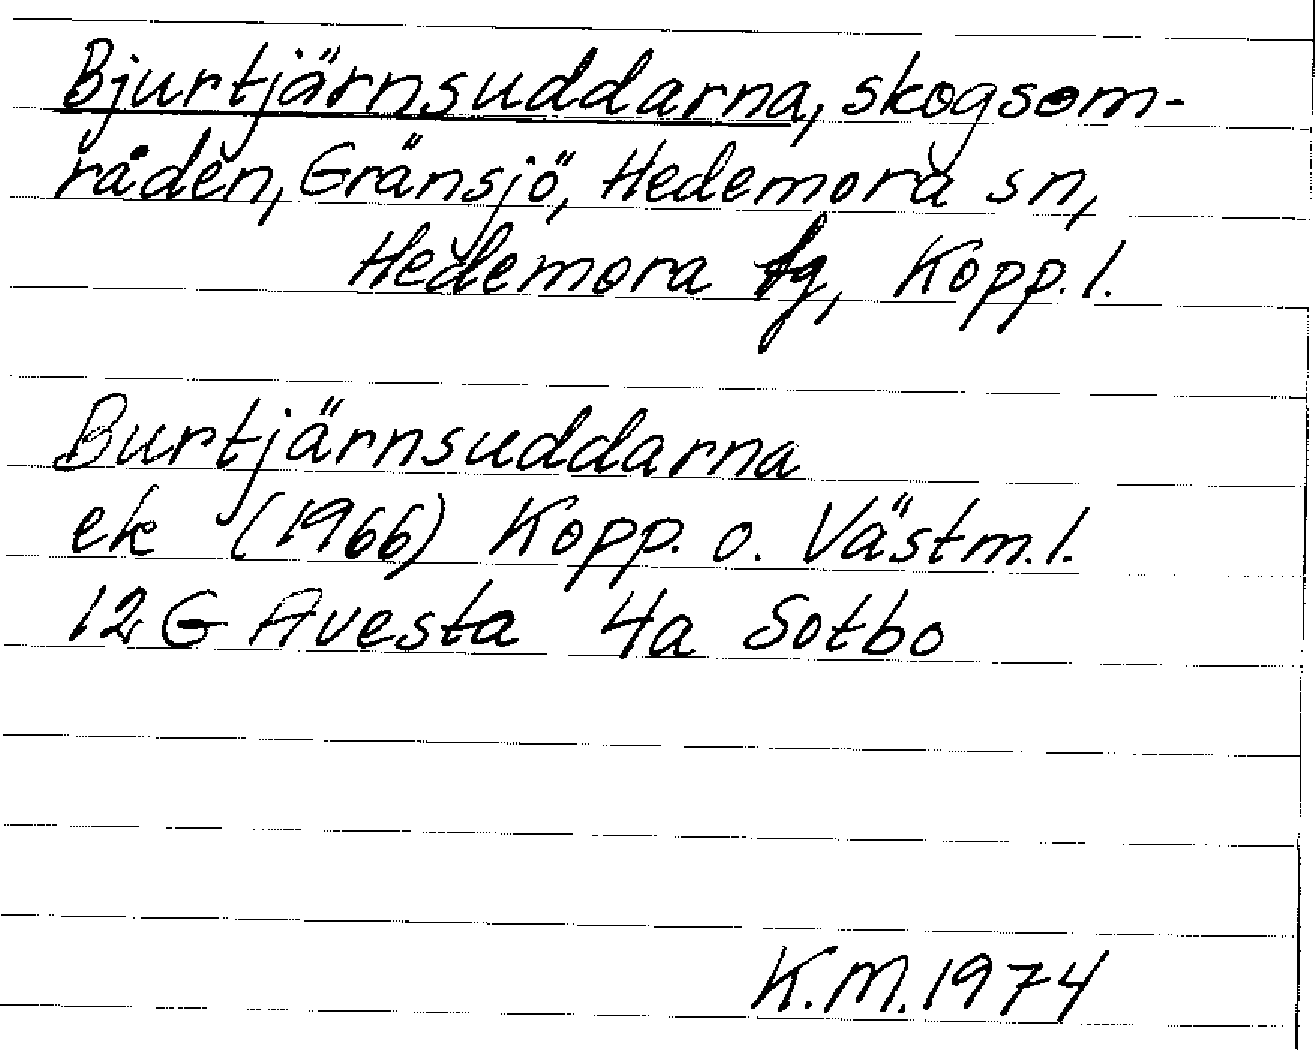 Bjurtjärnsuddarna, skogsom-
råden, Gränsjö, Hedemora sn,
Hedemora tg, Kopp. l.
Burtjärnsuddarna
ek (1966) Kopp. o. Västm. l.
12G Avesta 4a Sotbo
K.M. 1974